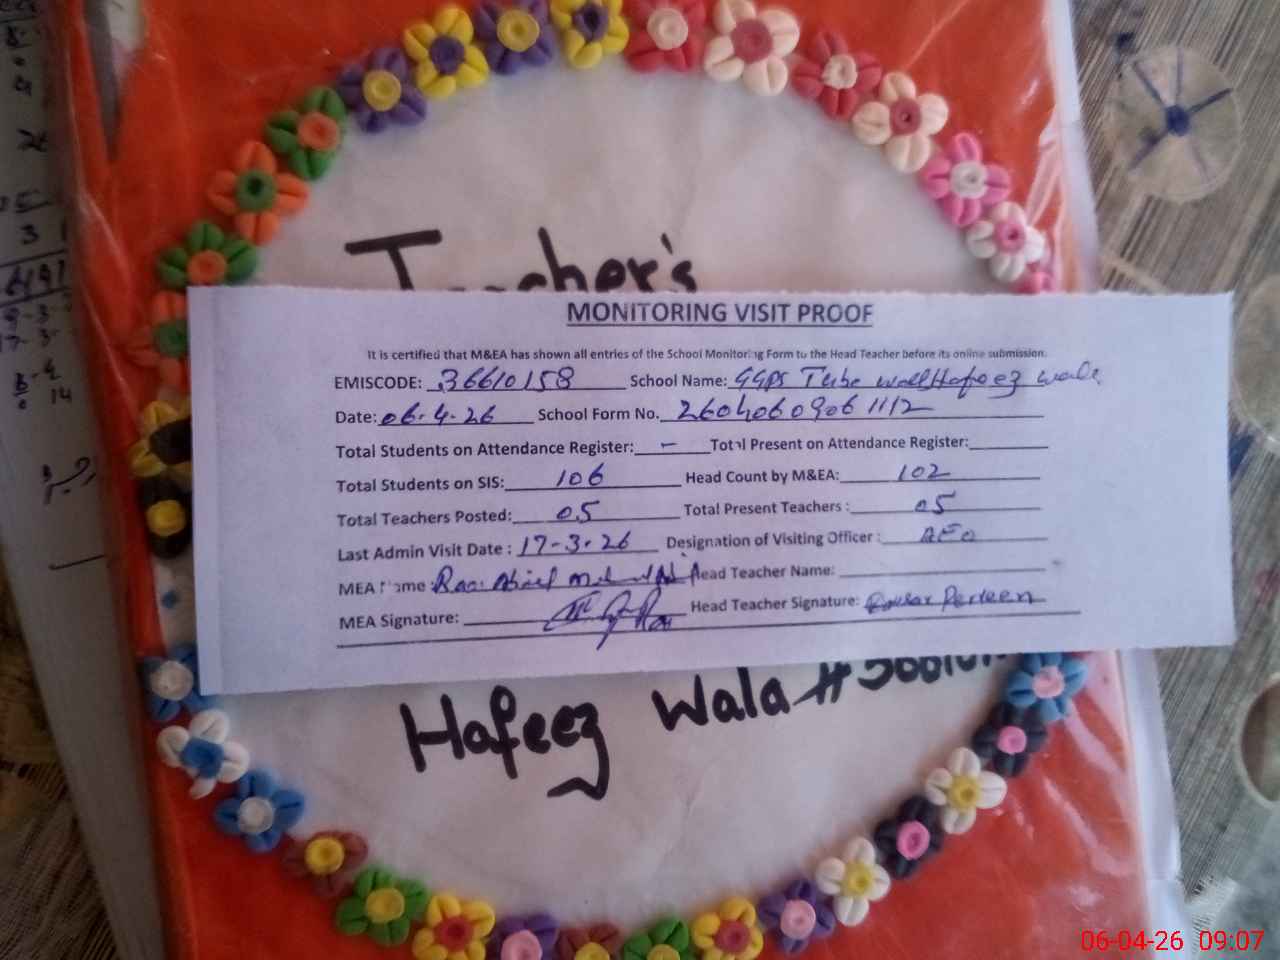 Teacher's
MONITORING VISIT PROOF
It is certified that M&EA has shown all entries of the School Monitoring Form to the Head Teacher before its online submission.
EMISCODE: 36610158 School Name: GGPS Tube well Hafeez wala
Date: 06-4-26 School Form No. 2604060906 1112
Total Students on Attendance Register: - Total Present on Attendance Register:
Total Students on SIS: 106 Head Count by M&EA: 102
Total Teachers Posted: 05 Total Present Teachers : 05
Last Admin Visit Date : 17-3-26 Designation of Visiting Officer : AEO
MEA Name : Head Teacher Name:
MEA Signature: Head Teacher Signature: Perveen
Hafeez Wala #
06-04-26 09:07